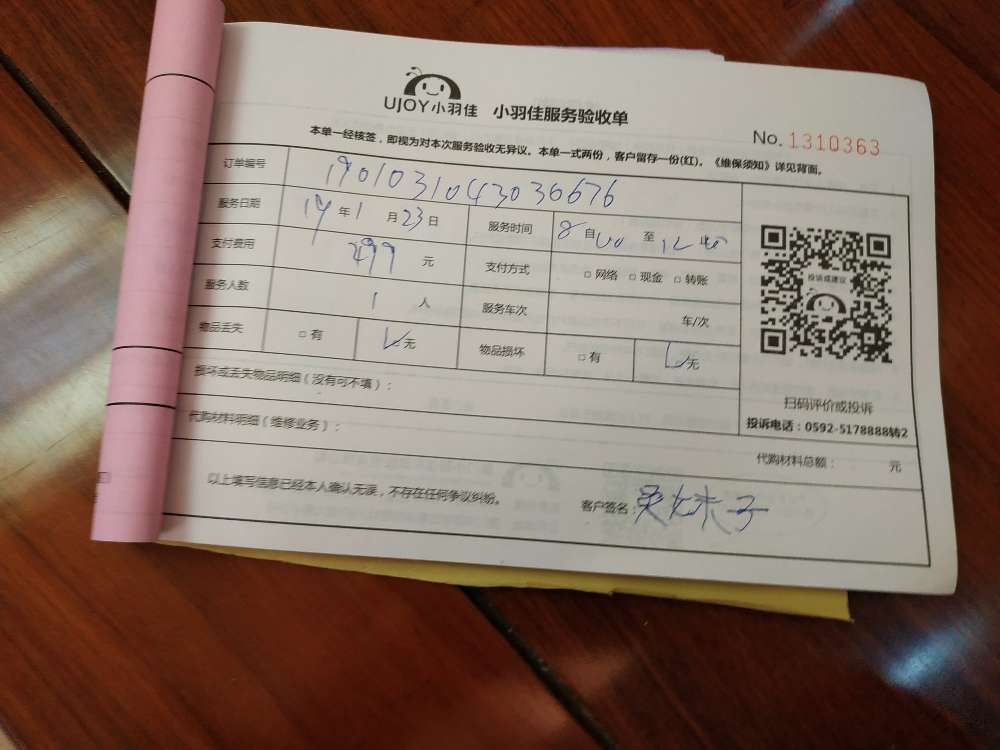 UJOY小羽佳 小羽佳服务验收单
No. 1310363
本单一经核签，即视为对本次服务验收无异议。本单一式两份，客户留存一份(红)。《维保须知》详见背面。
订单编号 1901031043036676
服务日期 19年1月23日 服务时间 8自00至12时
支付费用 499元 支付方式 □网络 □现金 □转账
服务人数 1人 服务车次 车/次
物品丢失 □有 □无 物品损坏 □有 □无
损坏或丢失物品明细（没有可不填）：
投诉或建议
扫码评价或投诉
投诉电话：0592-5178888转2
代购材料明细（维修业务）：
代购材料总额： 元
以上填写信息已经本人确认无误，不存在任何争议纠纷。
客户签名：